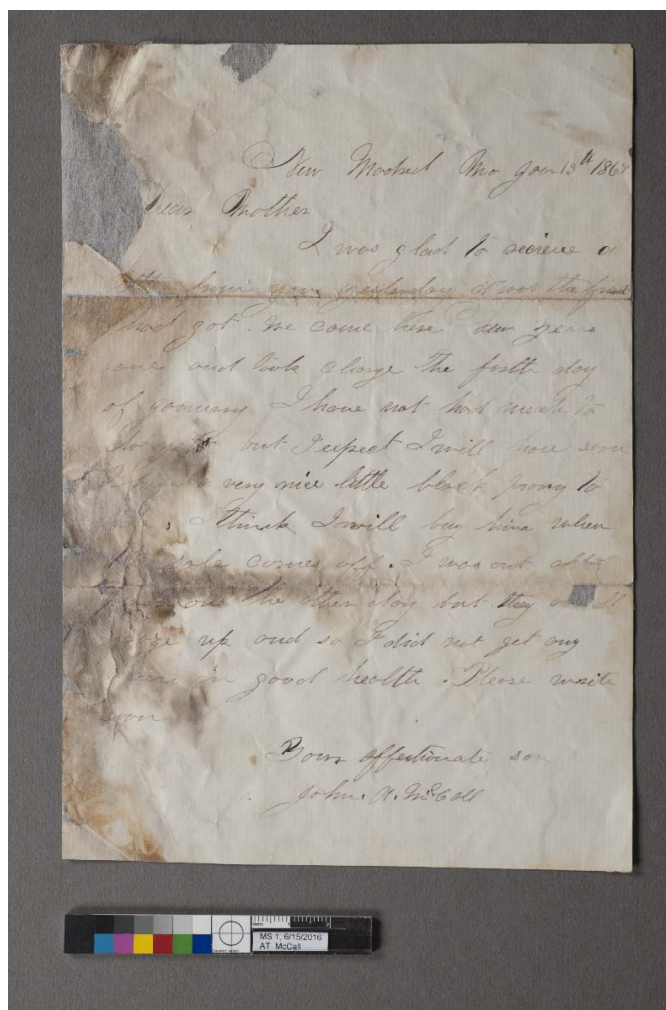 New Madrid Mo Jan 13th 186
Dear Mother
I was glad to recieve a
from you yesterday it was the first
I had got. We came here New years
and took charge the forth day
of January I have not had much to
do but I expect I will have soon
I have a very nice little black pony to
I think I will buy him when
sale comes off. I was out after
the other day but they
up and so I did not get any
am in good health. Please write
soon
Your affectionate son
John. A. McCall
MS 1, 6/15/2016
AT McCall